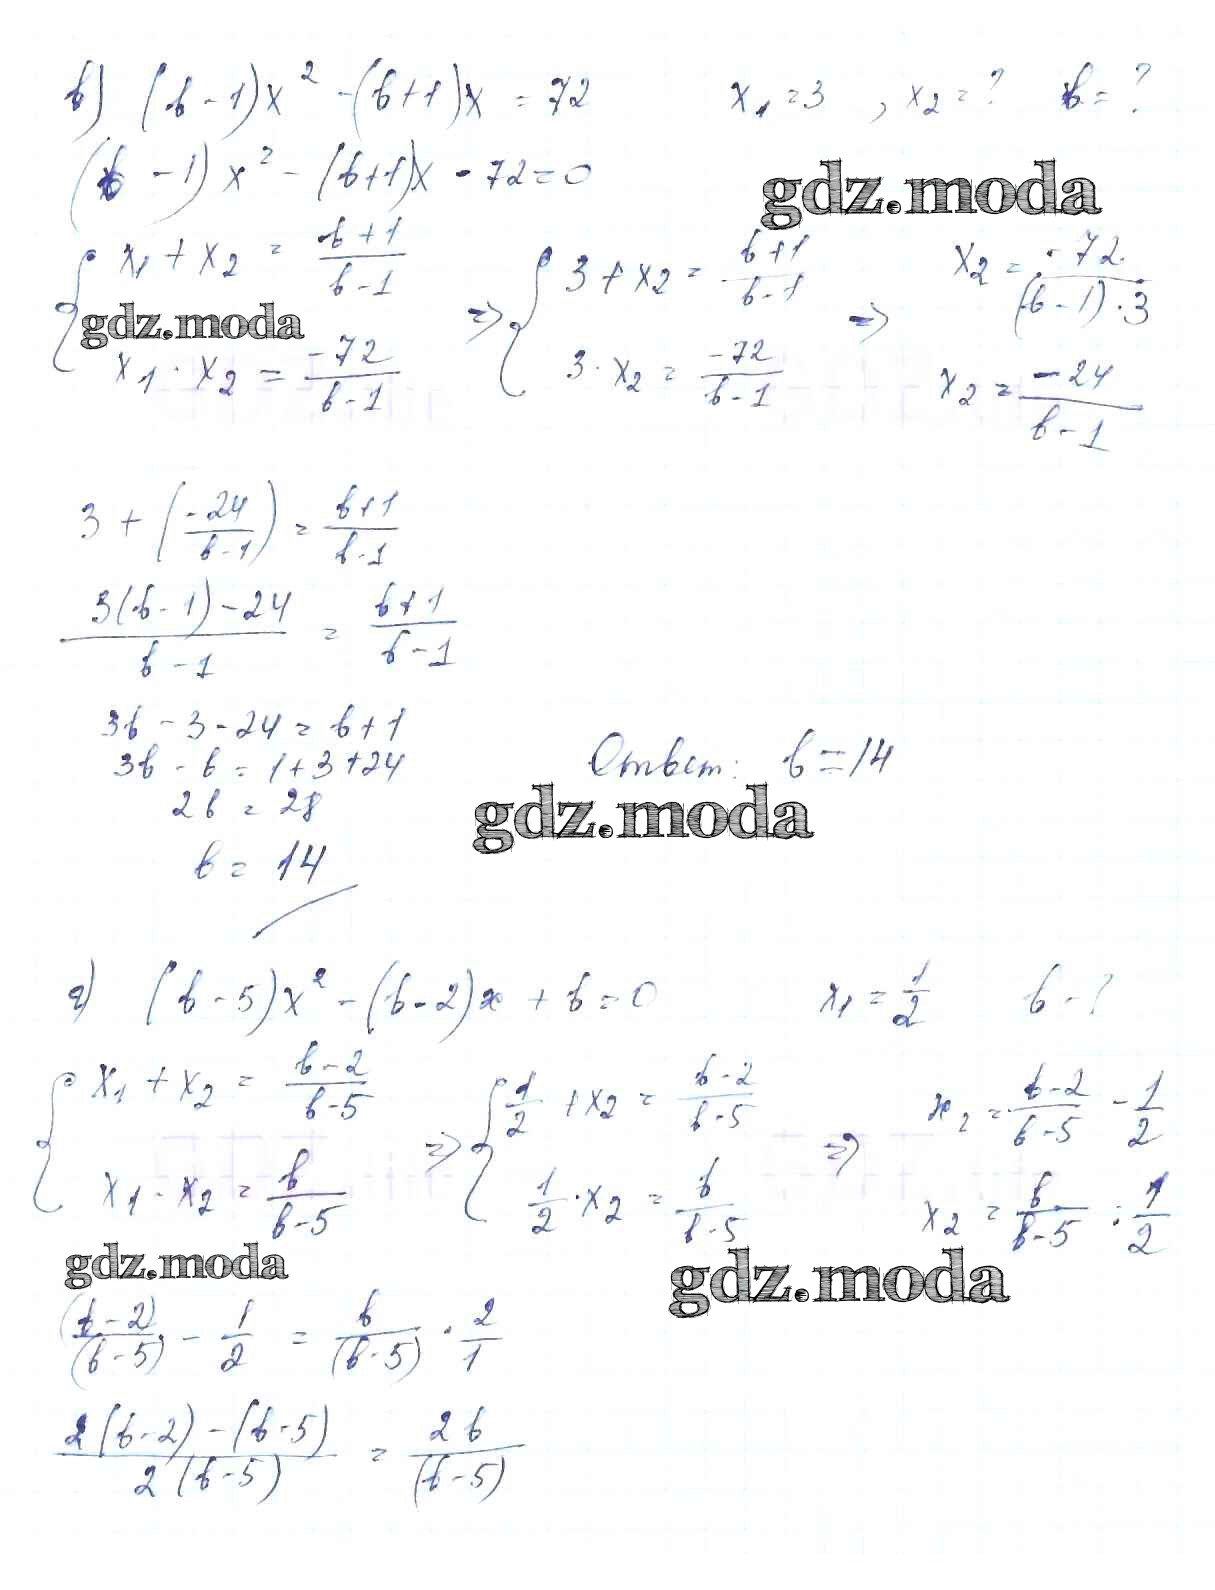 в) (b-1)x² - (b+1)x = 72    x₁ = 3 , x₂ = ?    b = ?
(b-1)x² - (b+1)x - 72 = 0
gdz.moda
{ x₁ + x₂ = (b+1)/(b-1)    => { 3 + x₂ = (b+1)/(b-1)    => x₂ = -72/((b-1)·3)
gdz.moda
x₁ · x₂ = -72/(b-1)    3 · x₂ = -72/(b-1)    x₂ = -24/(b-1)
3 + (-24/(b-1)) = (b+1)/(b-1)
(3(b-1) - 24)/(b-1) = (b+1)/(b-1)
3b - 3 - 24 = b + 1
3b - b = 1 + 3 + 24    Ответ: b = 14
2b = 28
gdz.moda
b = 14
г) (b-5)x² - (b-2)x + b = 0    x₁ = 1/2    b - ?
{ x₁ + x₂ = (b-2)/(b-5)    => { 1/2 + x₂ = (b-2)/(b-5)    => x₂ = (b-2)/(b-5) - 1/2
x₁ · x₂ = b/(b-5)    1/2 · x₂ = b/(b-5)    x₂ = b/(b-5) : 1/2
gdz.moda
gdz.moda
(b-2)/(b-5) - 1/2 = b/(b-5) · 2/1
(2(b-2) - (b-5))/(2(b-5)) = 2b/(b-5)